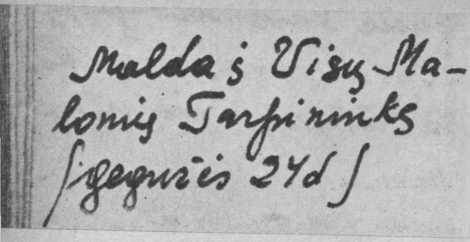 Malda į Visų Ma-
lonių Tarpininkę
(gegužės 24d)